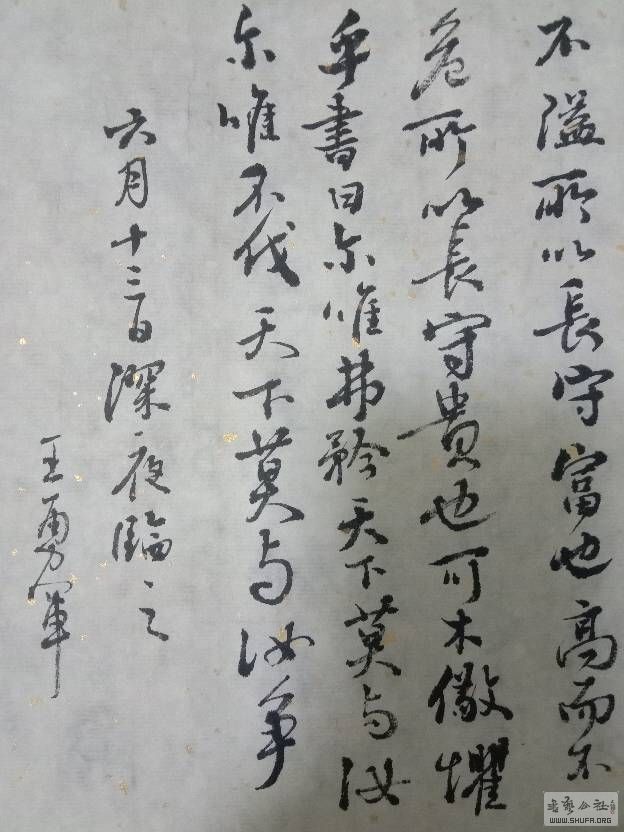 不溢所以長守富也高而不
危所以長守貴也可不儆懼
乎書曰尔唯弗矜天下莫与汝
尔唯不伐天下莫与汝争
六月十三日深夜臨之
王勇軍
书艺公社
WWW.SHUFA.ORG